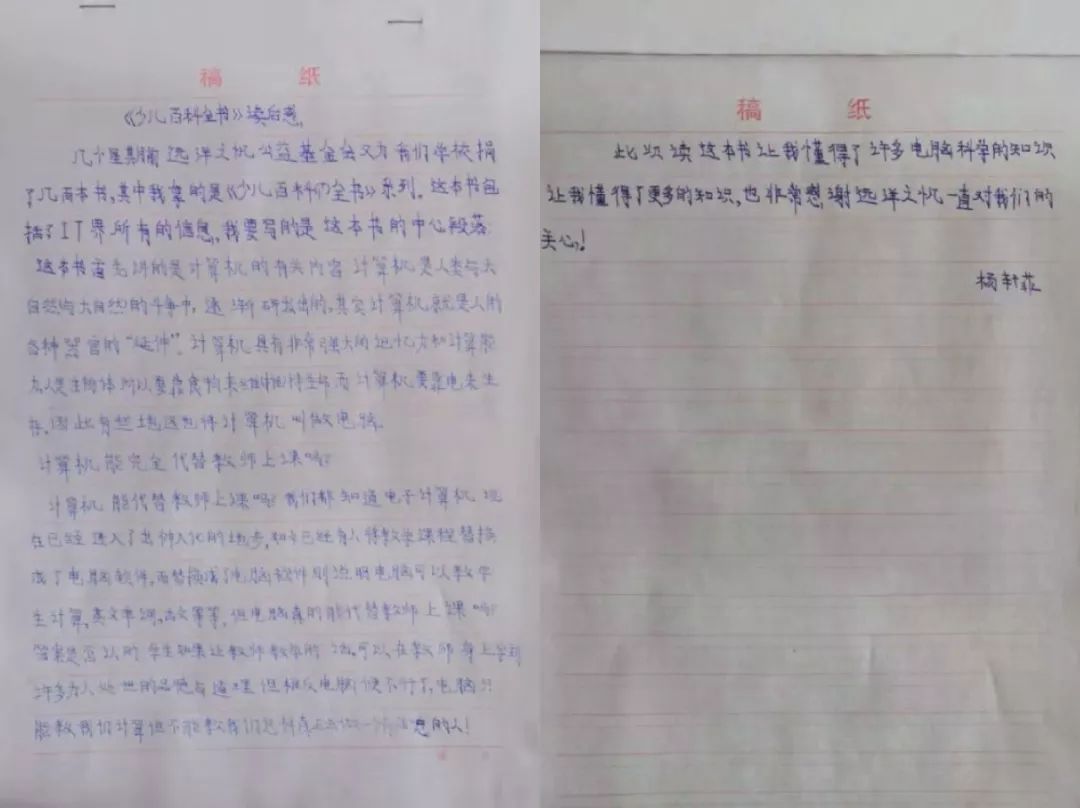 稿 纸
《少儿百科全书》读后感
几个星期前远洋之帆公益基金会又为我们学校捐
了几百本书,其中我拿的是《少儿百科全书》系列。这本书包
括了IT界所有的信息,我要写的是这本书的中心段落:
这本书首先讲的是计算机的有关内容 计算机是人类与大
自然与大自然的斗争中,逐渐研发出的,其实计算机就是人的
各种器官的“延伸”。计算机具有非常强大的记忆力和计算能
力人是生物体所以要靠食物来维持生命而计算机要靠电来生
存,因此有些地区也称计算机叫做电脑。
计算机能完全代替教师上课吗?
计算机能代替教师上课吗?我们都知道电子计算机现
在已经进入了出神入化的地步,如今已经有人将教学课程替换
成了电脑软件,而替换成了电脑软件则说明电脑可以教学
生计算,英文单词,函文等等,但电脑真的能代替教师上课吗?
答案是否认的 学生如果让教师教学的话,可以在教师身上学到
许多为人处世的品德与道理 但相反电脑便不行了,电脑只
能教我们计算但不能教我们怎样真正去做一个的人!
稿 纸
此次读这本书让我懂得了许多电脑科学的知识
让我懂得了更多的知识,也非常感谢远洋之帆一直对我们的
关心!
杨轩菲